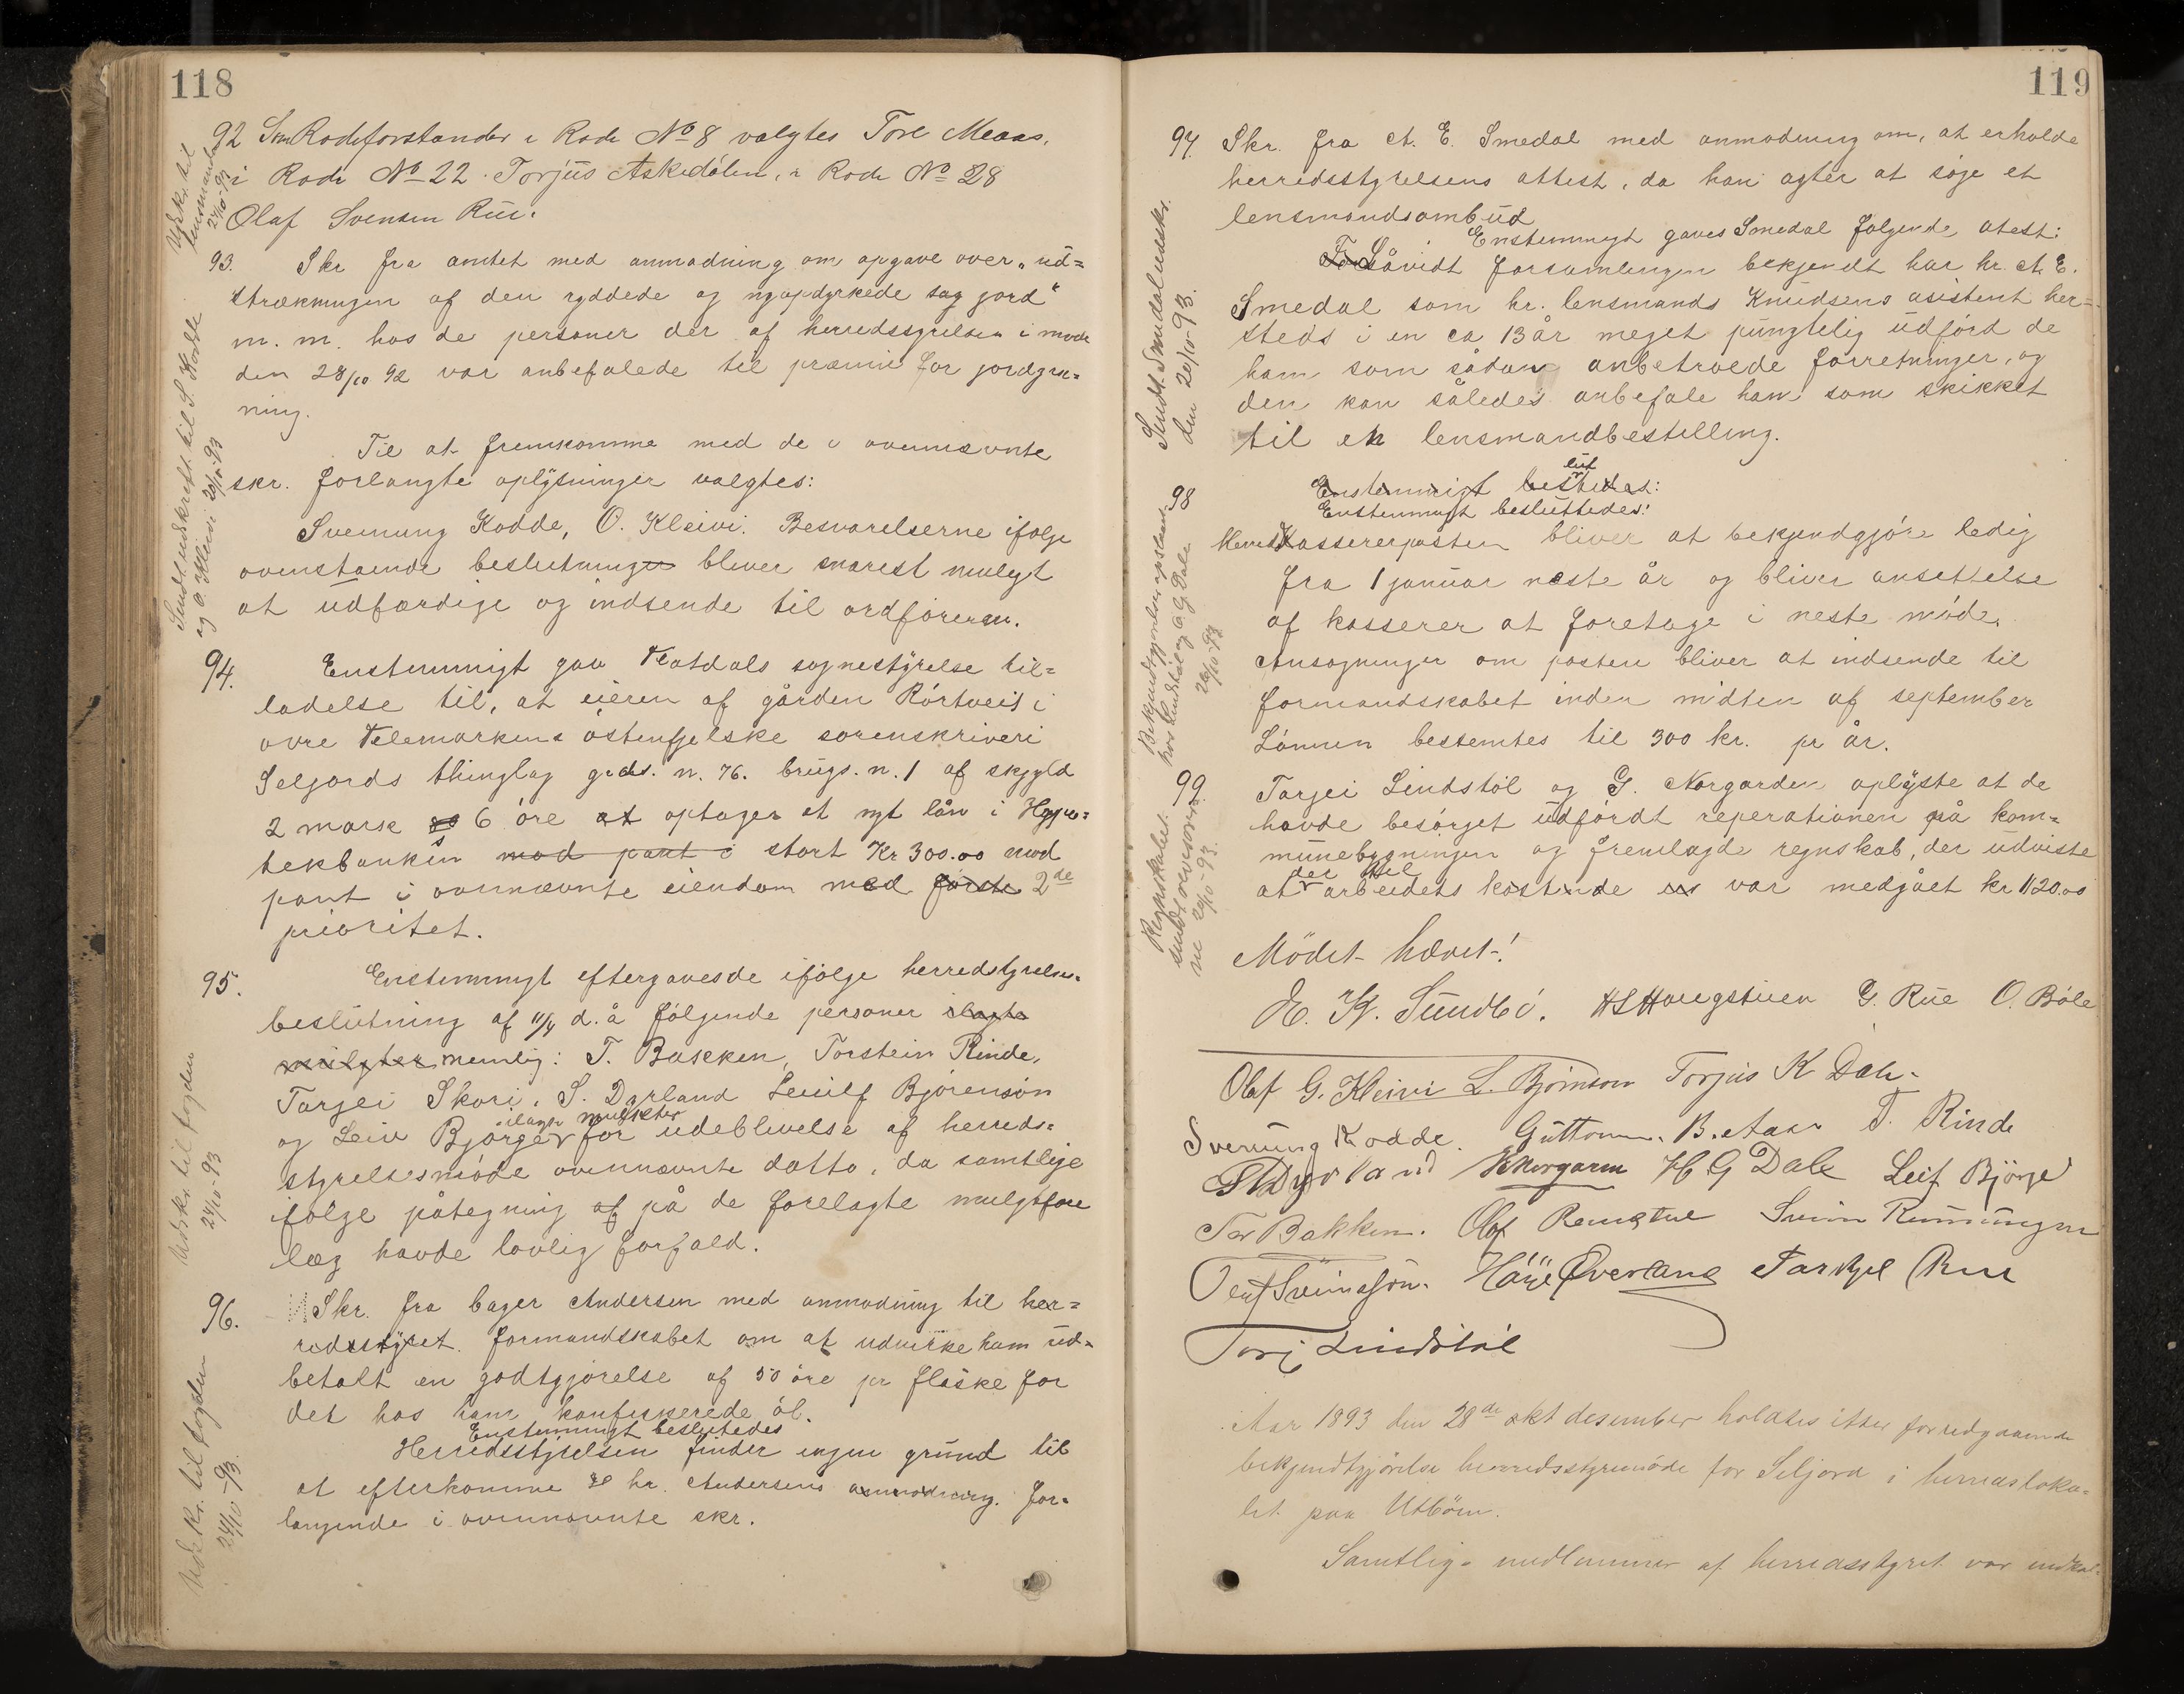 118
92 Som Rodeforstander i Rode No 8 valgtes Tore Meaas,
i Rode No 22 Torjus Askedalen, i Rode No 28
Olaf Svensen Rue.
Udskr. til lensmanden 24/10-93
93. Skr fra amtet med anmodning om opgave over "ud=
strækningen af den ryddede og nyopdyrkede jord"
m. m. hos de personer der af herredsstyrelsen i møde
den 28/10 92 var anbefalede til præmie for jorddyrk=
ning.
Til at fremkomme med de i ovennævnte
skr. forlangte oplysninger valgtes:
Svenung Kodde, O. Kleivi. Besvarelserne ifølge
ovenstaende beslutninger bliver snarest muligt
at udfærdige og indsende til ordføreren.
Sendt udskrift til S. Kodde
og O. Kleivi 20/10-93
94. Enstemmigt gav Flatdals sognestyrelse til=
ladelse til, at eieren af gården Rórtveit i
øvre Telemarkens óstenfjelske sorenskriveri
Seljords thinglag grds. n. 76. brugs. n. 1 af skyld
2 mark 6 óre optager et nyt lån i Hypo=
tekbanken mod pant i stort Kr 300.00 mod
pant i ovennævnte eiendom med første 2de
prioritet.
95. Enstemmigt eftergavesde ifølge herredstyrelses=
beslutning af 11/4 d. å følgende personer ilagte
mulgter nemlig: T. Bakken, Torstein Rinde,
Tarjei Skori, S. Dyrland Leiulf Bjórensón
ilagte mulkter
og Leiv Bjørge for udeblivelse af herreds=
styrelsesmóde ovennævnte datto, da samtlige
ifølge påtegning af på de forelagte mulgtfore
læg havde lovlig forfald.
Udskr. til fogden
24/10-93
96. Skr. fra bager Andersen med anmodning til her=
redsstyret. formandskabet om at udvirke ham ud=
betalt en godtgjørelse af 50 óre pr flaske for
det hos ham konfiskerede ól.
Enstemmigt besluttedes
Herredsstyrelsen finder ingen grund til
at efterkomme hr. Andersens anmodning. for=
langende i ovennævnte skr.
Udskr. til fogden
24/10-93.
119
97. Skr. fra A. E. Smedal med anmodning om, at erholde
herredsstyrelsens attest, da han agter at sóge et
lensmandsombud
Enstemmigt gaves Smedal følgende atest:
For Såvidt forsamlingen bekjendt har hr. A. E.
Smedal som hr. lensmands Knudsens asistent her=
steds i en ca 13 år meget pungtelig udfórd de
ham som sådan anbetroede forretninger, og
den kan således anbefale ham som skikket
til en lensmandbestilling.
Sendt Smedal udskr.
den 20/10-93.
98 Enstemmigt besluttedes:
Enstemmigt besluttedes:
Herredskassererposten bliver at bekjendgjóre ledig
fra 1 januar næste år og bliver ansettelse
af kasserer at foretage i neste móde.
Ansøgninger om posten bliver at indsende til
formandskabet inden midten af september
Lónnen bestemtes til 300 kr. pr år.
Bekjendtgjørelsen opslaat
hos Lindstøl og O. G. Dale
26/10-93
99 Tarjei Lindstól og G. Norgarden oplyste at de
havde besórget udfórdt reperationen på kom=
munebygningen og fremlagde regnskab, der udviste
der til
at arbeidets kostende var medgået kr 1120.00
Regnskabet
sendt revisorer=
ne 20/10-93.
Mödet hævet!
E. K. Sundbó. H S Haugstuen G. Rue O. Bóle
Olaf G. Kleivi L. Bjórnson Torjus K Dale
Svenung Kodde. Guttorm B. Aase T. Rinde
S Dyrland K Norgaren H G Dale Leif Björge
Tor Bakken. Olaf Svein
Olaf Sveinsson. Høye Øverland Tarkjel Rue
Tarjei Lindstól
Aar 1893 den 28de okt desember holdtes itter forudgaaende
bekjendtgjörelse herredsstyremöde for Seljord i herredsloka=
let paa Utböen.
Samtlige medlemmer af herredsstyret var indkal=